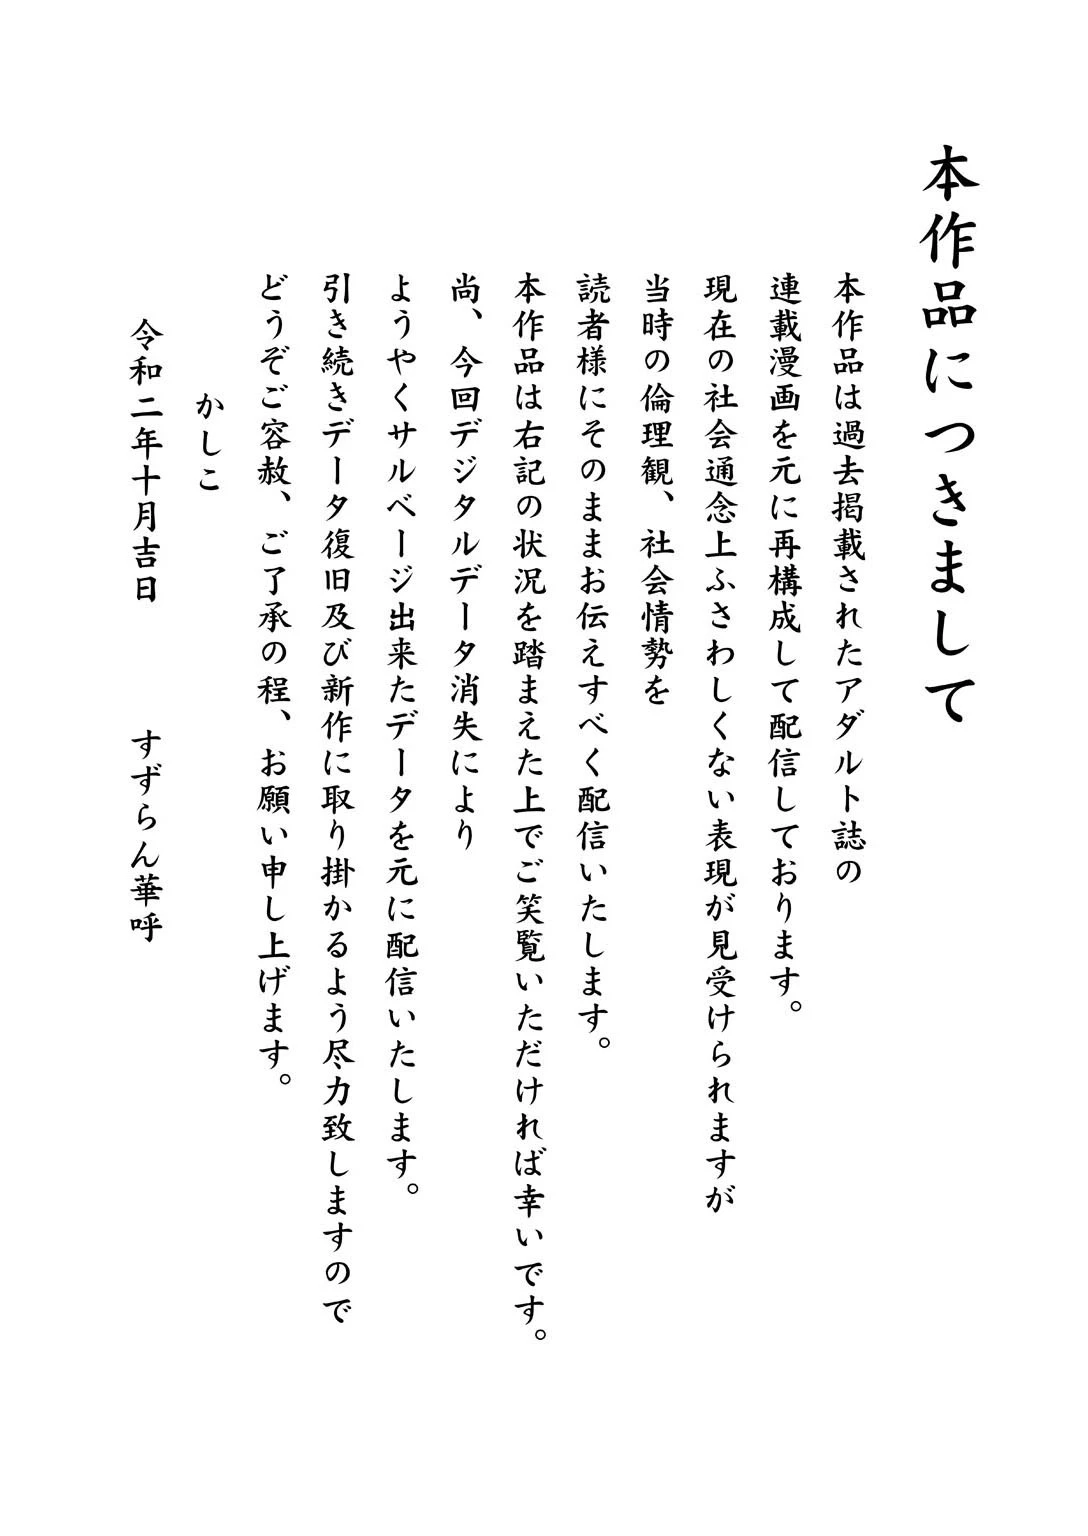 本作品につきまして
本作品は過去掲載されたアダルト誌の
連載漫画を元に再構成して配信しております。
現在の社会通念上ふさわしくない表現が見受けられますが
当時の倫理観、社会情勢を
読者様にそのままお伝えすべく配信いたします。
本作品は右記の状況を踏まえた上でご笑覧いただければ幸いです。
尚、今回デジタルデータ消失により
ようやくサルベージ出来たデータを元に配信いたします。
引き続きデータ復旧及び新作に取り掛かるよう尽力致しますので
どうぞご容赦、ご了承の程、お願い申し上げます。
かしこ
令和二年十月吉日　すずらん華呼